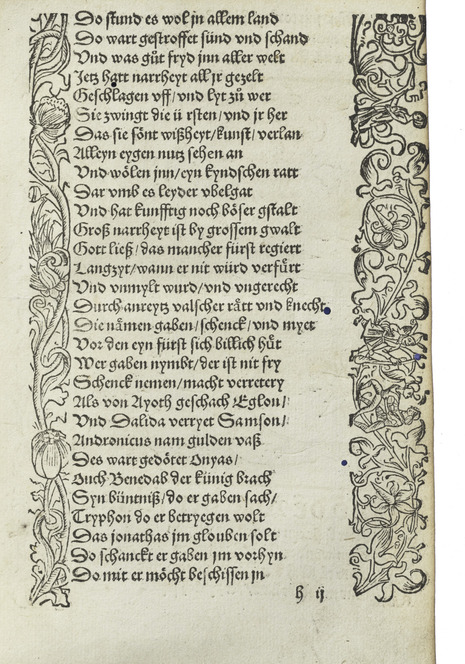 Do stund es wol jn allem land
Do wart gestroffet sünd vnd schand
Vnd was gůt fryd jnn aller welt
Jetz hatt narrheyt all jr gezelt
Geschlagen vff / vnd lyt zů wer
Sie zwingt die ü rsten / vnd jr her
Das sie sönt wißheyt / kunst / verlan
Alleyn eygen nutz sehen an
Vnd wölen jnn / eyn kyndschen ratt
Dar vmb es leyder vbel gat
Vnd hat kunfftig noch böser gstalt
Groß narrheyt ist by grossem gwalt
Gott ließ / das mancher fürst regiert
Langzyt / wann er nit würd verfůrt
Vnd vnmylt wurd / vnd vngerecht
Durch anreytz valscher rätt vnd knecht
Die nämen gaben / schenck / vnd myet
Vor den eyn fürst sich billich hůt
Wer gaben nymbt / der ist nit fry
Schenck nemen / macht verretery
Als von Ayoth geschach Eglon /
Vnd Dalida verryet Samson /
Andronicus nam gulden vaß
Des wart gedötet Onyas /
Ouch Benedab der künig brach
Syn büntniß / do er gaben sach /
Tryphon do er betryegen wolt
Das jonathas jm glouben solt
Do schanckt er gaben jm vorhyn
Do mit er möcht beschissen jn
h ij